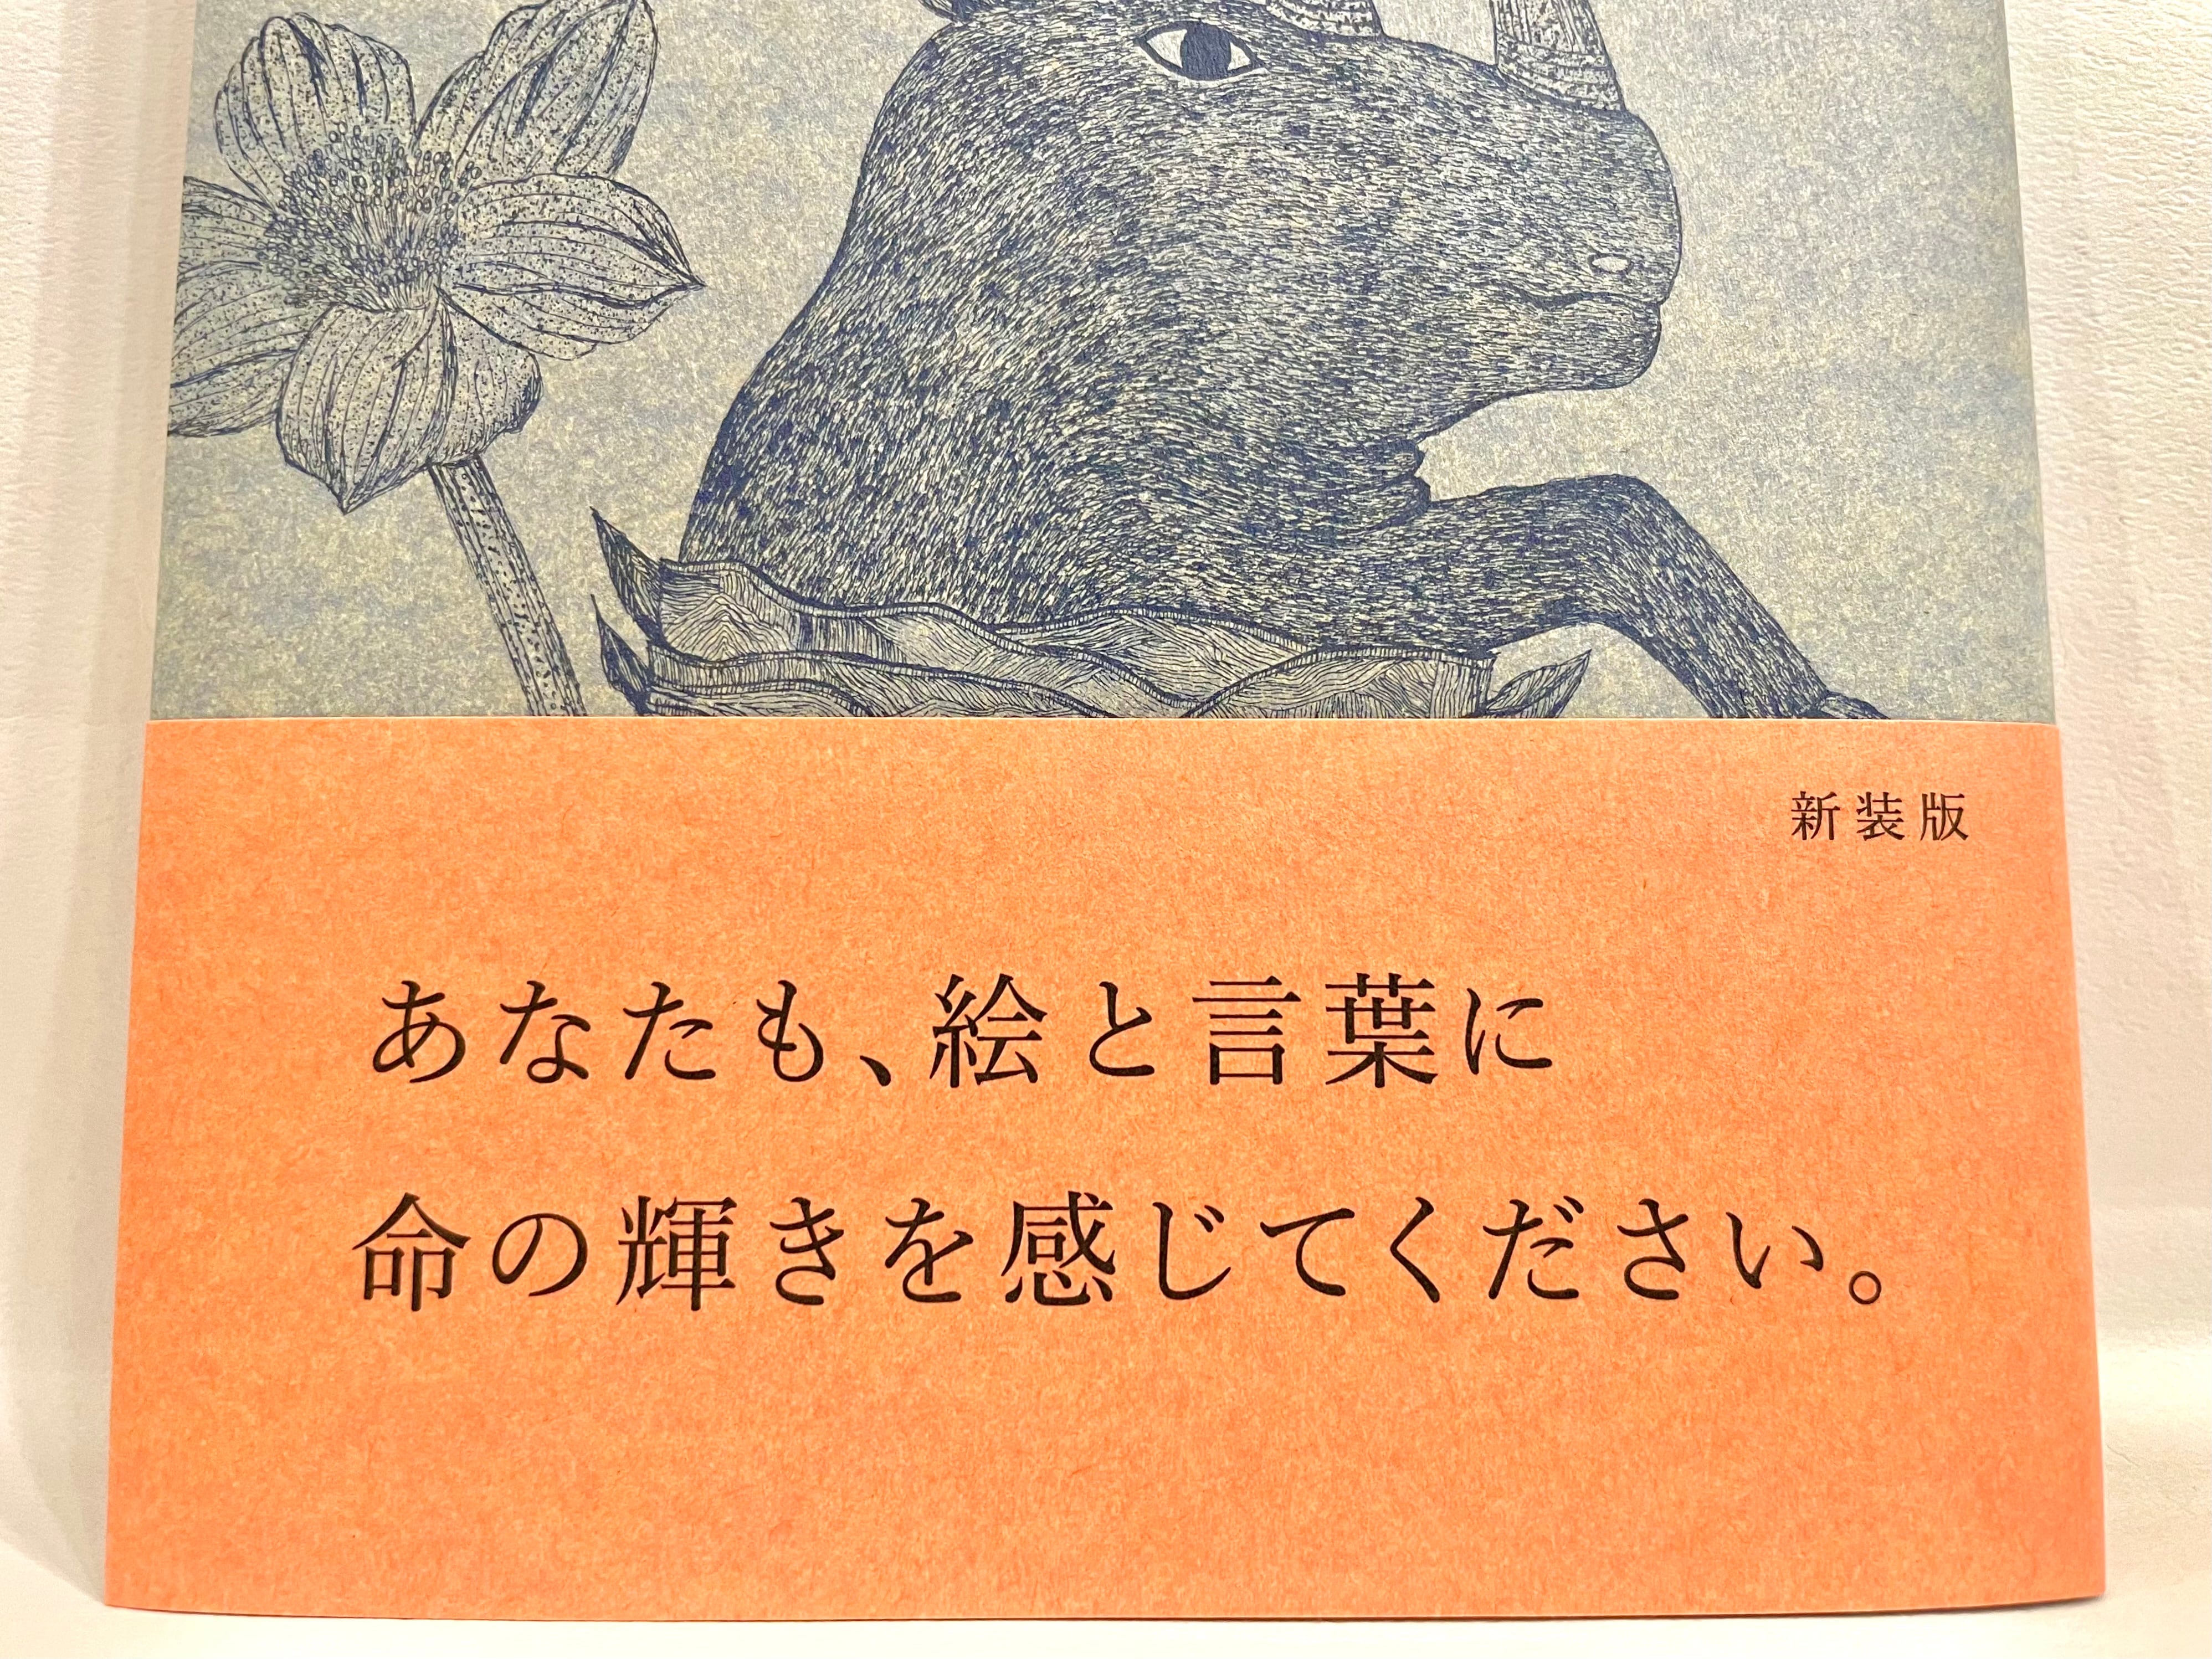 新装版
あなたも、絵と言葉に
命の輝きを感じてください。